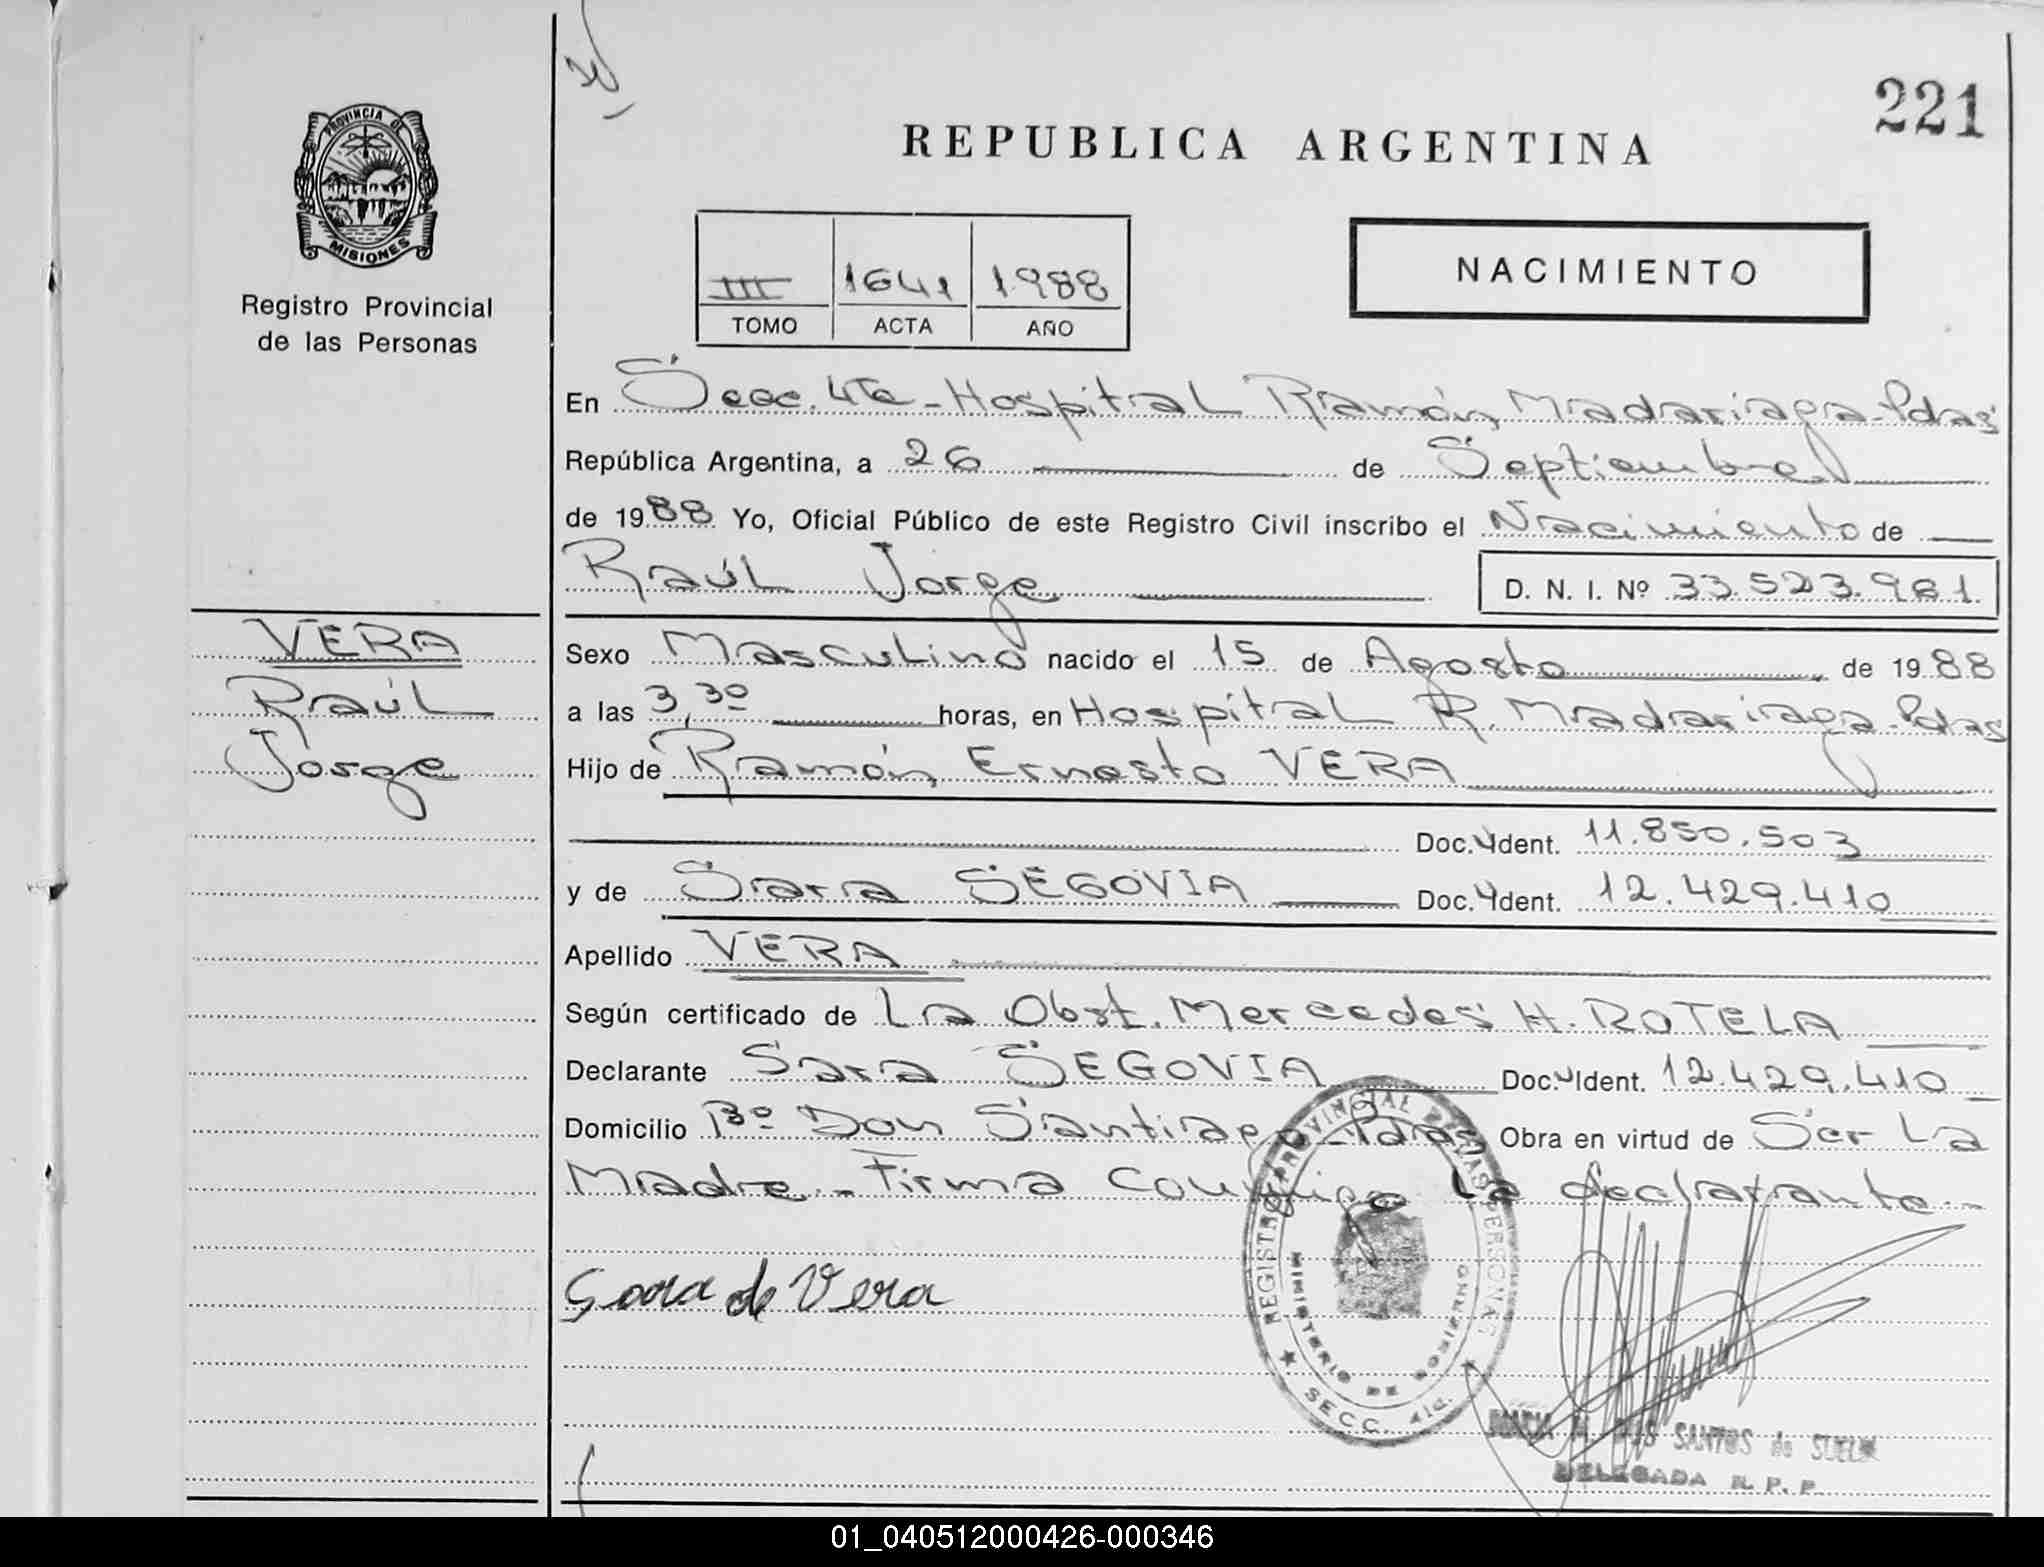 221
REPUBLICA ARGENTINA
PROVINCIA DE
MISIONES
Registro Provincial
de las Personas
III 1641 1988
TOMO ACTA AÑO
NACIMIENTO
En Secc. 4ta - Hospital Ramón Madariaga - Pdas
República Argentina, a 26 de Septiembre
de 1988 Yo, Oficial Público de este Registro Civil inscribo el Nacimiento de
Raúl Jorge D. N. I. Nº 33.523.981.
VERA
Raúl
Jorge
Sexo Masculino nacido el 15 de Agosto de 1988
a las 3,30 horas, en Hospital R. Madariaga - Pdas
Hijo de Ramón Ernesto VERA
Doc. Ident. 11.850.503
y de Sara SEGOVIA Doc. Ident. 12.429.410
Apellido VERA
Según certificado de La Obst. Mercedes H. ROTELA
Declarante Sara SEGOVIA Doc. Ident. 12.429.410
Domicilio Bº Don Santiago - Pdas Obra en virtud de Ser La
Madre - Firma Conmigo La declarante -
Sara de Vera
REGISTRO PROVINCIAL DE LAS PERSONAS
MINISTERIO DE GOBIERNO
SECC. 4ta.
M. DOS SANTOS de
DELEGADA R. P. P.
01_040512000426-000346